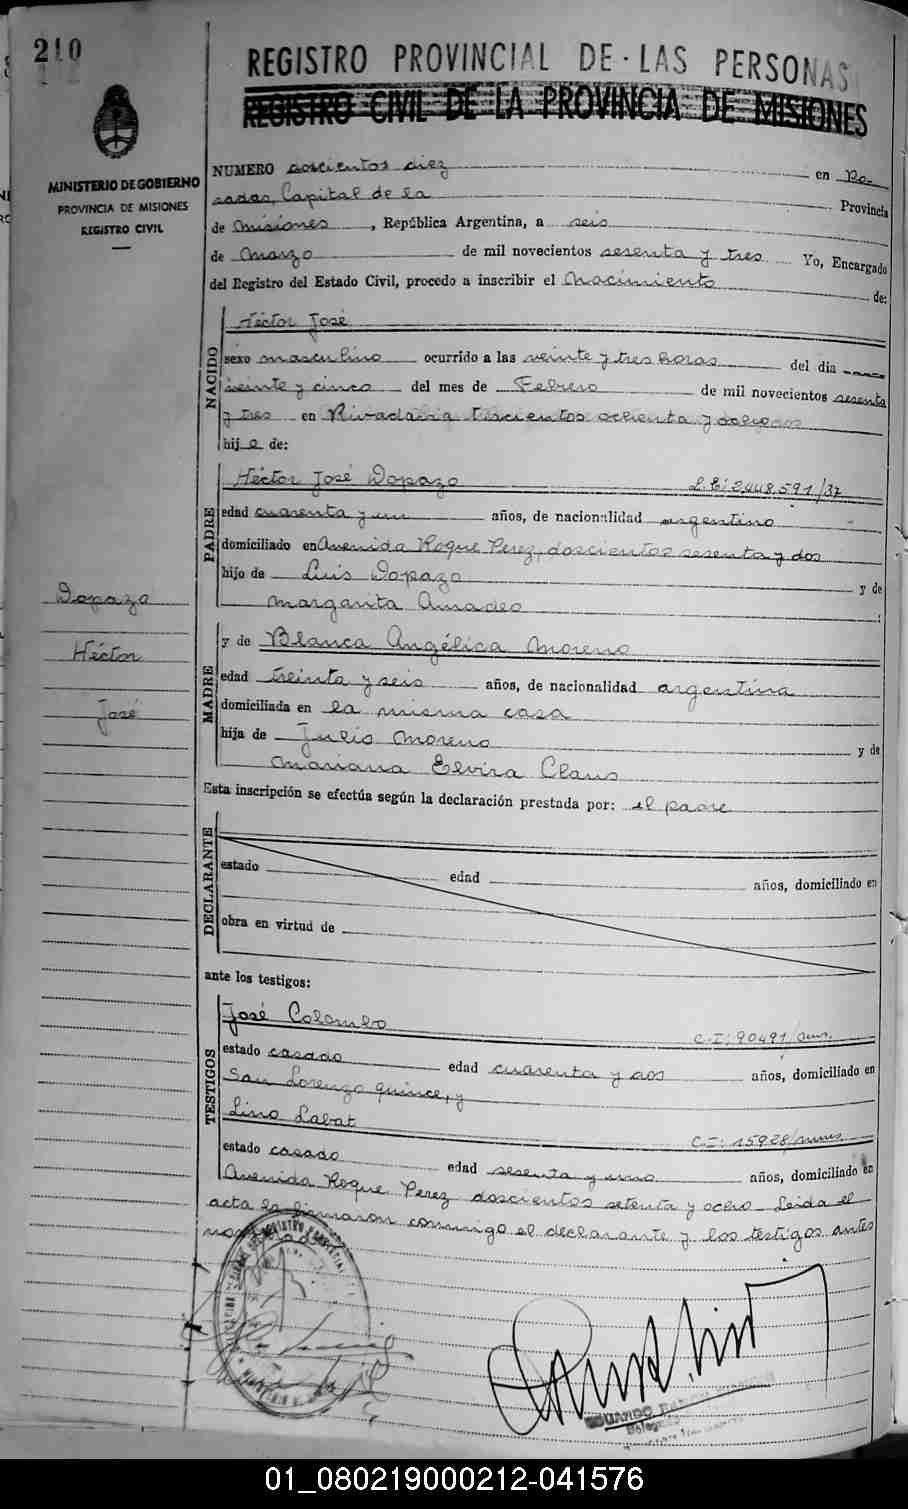 210
REGISTRO PROVINCIAL DE · LAS PERSONAS
REGISTRO CIVIL DE LA PROVINCIA DE MISIONES
MINISTERIO DE GOBIERNO
PROVINCIA DE MISIONES
REGISTRO CIVIL
NUMERO doscientos diez en Po-
sadas, Capital de la Provincia
de Misiones, República Argentina, a seis
de Marzo de mil novecientos sesenta y tres Yo, Encargado
del Registro del Estado Civil, procedo a inscribir el Nacimiento de:
NACIDO
Héctor José
sexo masculino ocurrido a las veinte y tres horas del dia
veinte y cinco del mes de Febrero de mil novecientos sesenta
y tres en Rivadavia trescientos ochenta y
hijo de:
PADRE
Héctor José Dopazo L.E: 2.448.591/37
edad cuarenta y un años, de nacionalidad argentino
domiciliado en Avenida Roque Perez, doscientos sesenta y dos
hijo de Luis Dopazo y de
Margarita Amadeo :
Dopazo
Héctor
José
MADRE
y de Blanca Angélica Moreno
edad treinta y seis años, de nacionalidad argentina
domiciliada en la misma casa
hija de Julio Moreno y de
Mariana Elvira Claus
Esta inscripción se efectúa según la declaración prestada por: el padre
DECLARANTE
estado edad años, domiciliado en
obra en virtud de
ante los testigos:
TESTIGOS
José Colombo C.I: 90491/
estado casado edad cuarenta y dos años, domiciliado en
San Lorenzo quince, y
Lino Labat C.I: 15928/
estado casado edad sesenta y uno años, domiciliado en
Avenida Roque Perez doscientos setenta y ocho. Leida el
acta la firmaron conmigo el declarante y los testigos antes
01_080219000212-041576